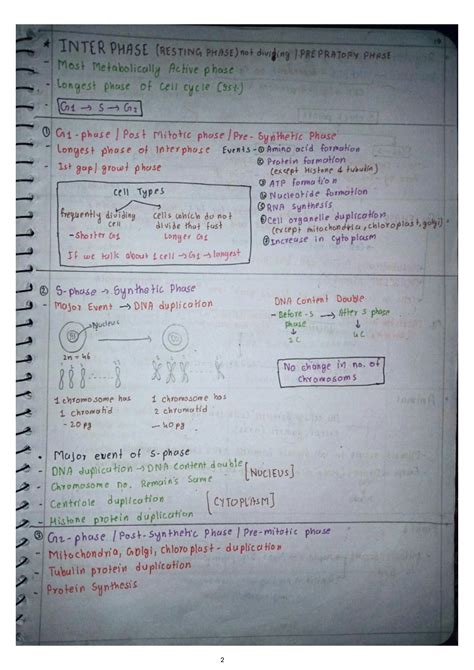 * INTERPHASE (RESTING PHASE) not dividing / PREPRATORY PHASE
- Most Metabolically Active phase
- Longest phase of cell cycle (95%)
- G1 → S → G2
① G1-phase / Post Mitotic phase / Pre-Synthetic Phase
- Longest phase of Interphase
- 1st gap / growt phase
Events - ① Amino acid formation
② Protein formation
(except Histone & tubulin)
③ ATP formation
④ Nucleotide formation
⑤ RNA synthesis
⑥ Cell organelle duplication
(except mitochondria, chloroplast, golgi)
⑦ Increase in cytoplasm
Cell Types
frequently dividing cell
- Shorter G1
Cells which do not divide that fast
Longer G1
If we talk about 1 cell → G1 → longest
② S-phase → Synthetic Phase
- Major Event → DNA duplication
Nucleus
2n = 46
1 chromosome has
1 chromatid
- 20 pg
1 chromosome has
2 chrumatid
- 40 pg
DNA Content Double
- Before-S phase → After S phase
2C 4C
No change in no. of
chromosoms
. Major event of S-phase
- DNA duplication → DNA content double
- Chromosome no. Remain's Same
[NUCLEUS]
- Centriole duplication
- Histone protein duplication
[CYTOPLASM]
③ G2-phase / Post-Synthetic Phase / Pre-mitotic phase
- Mitochondria, Golgi, chloroplast - duplication
- Tubulin protein duplication
- Protein Synthesis
2